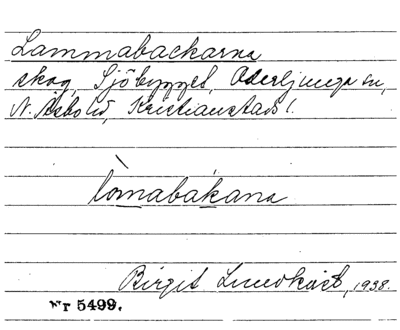 Lammabackarna
skog, Sjöbygget, Oderljunga sn,
N. Åsbo hd, Kristianstads l.
lòmabakana
Birgit Lundkvist, 1938.
Nr 5499.